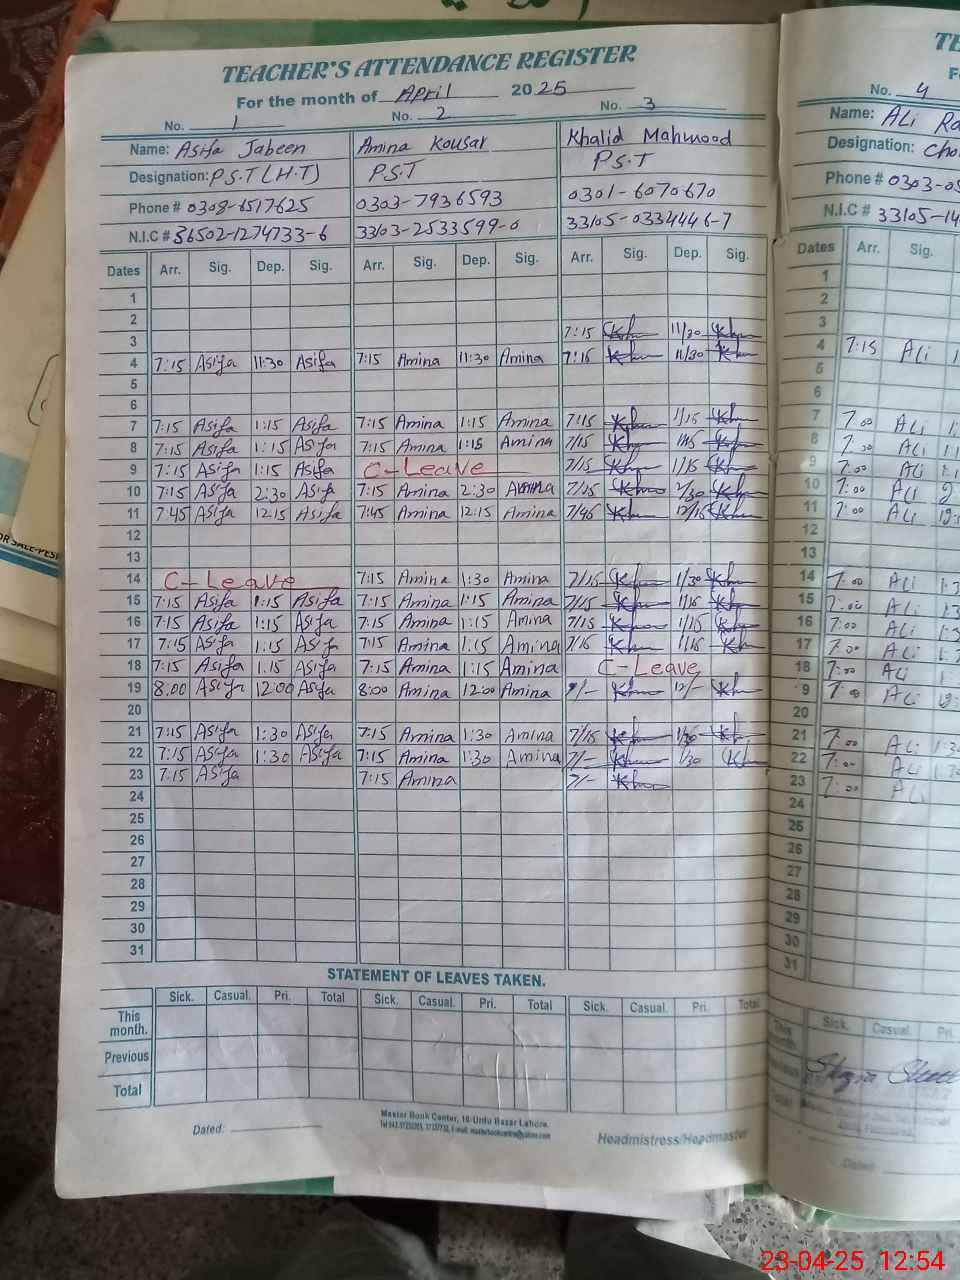 TEACHER'S ATTENDANCE REGISTER
For the month of April 2025
No. 1 No. 2 No. 3
Name: Asifa Jabeen Amina Kousar Khalid Mahmood
Designation: P.S.T (H.T) P.S.T P.S.T
Phone # 0308-6517625 0303-7936593 0301-6070670
N.I.C # 36502-1274733-6 33103-2533599-0 33105-0334446-7
Dates Arr. Sig. Dep. Sig. Arr. Sig. Dep. Sig. Arr. Sig. Dep. Sig.
1
2
3 7:15 Khm 11/30 Khm
4 7:15 Asifa 11:30 Asifa 7:15 Amina 11:30 Amina 7:15 Khm 11/30 Khm
5
6
7 7:15 Asifa 1:15 Asifa 7:15 Amina 1:15 Amina 7/15 Khm 1/15 Khm
8 7:15 Asifa 1:15 Asifa 7:15 Amina 1:15 Amina 7/15 Khm 1/15 Khm
9 7:15 Asifa 1:15 Asifa C-Leave 7/15 Khm 1/15 Khm
10 7:15 Asifa 2:30 Asifa 7:15 Amina 2:30 Amina 7/15 Khm 2/30 Khm
11 7:45 Asifa 12:15 Asifa 7:45 Amina 12:15 Amina 7/45 Khm 12/15 Khm
12
13
14 C-Leave 7:15 Amina 1:30 Amina 7/15 Khm 1/30 Khm
15 7:15 Asifa 1:15 Asifa 7:15 Amina 1:15 Amina 7/15 Khm 1/15 Khm
16 7:15 Asifa 1:15 Asifa 7:15 Amina 1:15 Amina 7/15 Khm 1/15 Khm
17 7:15 Asifa 1:15 Asifa 7:15 Amina 1:15 Amina 7/15 Khm 1/15 Khm
18 7:15 Asifa 1:15 Asifa 7:15 Amina 1:15 Amina C-Leave
19 8:00 Asifa 12:00 Asifa 8:00 Amina 12:00 Amina Khm 12/- Khm
20
21 7:15 Asifa 1:30 Asifa 7:15 Amina 1:30 Amina 7/15 Khm 1/30 Khm
22 7:15 Asifa 1:30 Asifa 7:15 Amina 1:30 Amina 7/- Khm 1/30 Khm
23 7:15 Asifa 7:15 Amina 7/- Khm
24
25
26
27
28
29
30
31
STATEMENT OF LEAVES TAKEN.
Sick. Casual. Pri. Total Sick. Casual. Pri. Total Sick. Casual. Pri. Total
This month.
Previous
Total
Master Book Center, 10-Urdu Bazar Lahore.
Dated: Headmistress/Headmaster
No. 4
Name: Ali
Designation:
Phone # 0303-
N.I.C # 33105-14
Dates Arr. Sig.
1
2
3
4 7:15 ALi
5
6
7 7:00 ALi
8 7:00 ALi
9 7:00 ALi
10 7:00 ALi
11 7:00 ALi
12
13
14 7:00 ALi
15 7:00 ALi
16 7:00 ALi
17 7:00 ALi
18 7:00 ALi
9 7:00 ALi
20
21 7:00 ALi
22 7:00 ALi
23 7:00 ALi
24
25
26
27
28
29
30
31
Sick. Casual. Pri.
This month.
Dated:
23-04-25 12:54